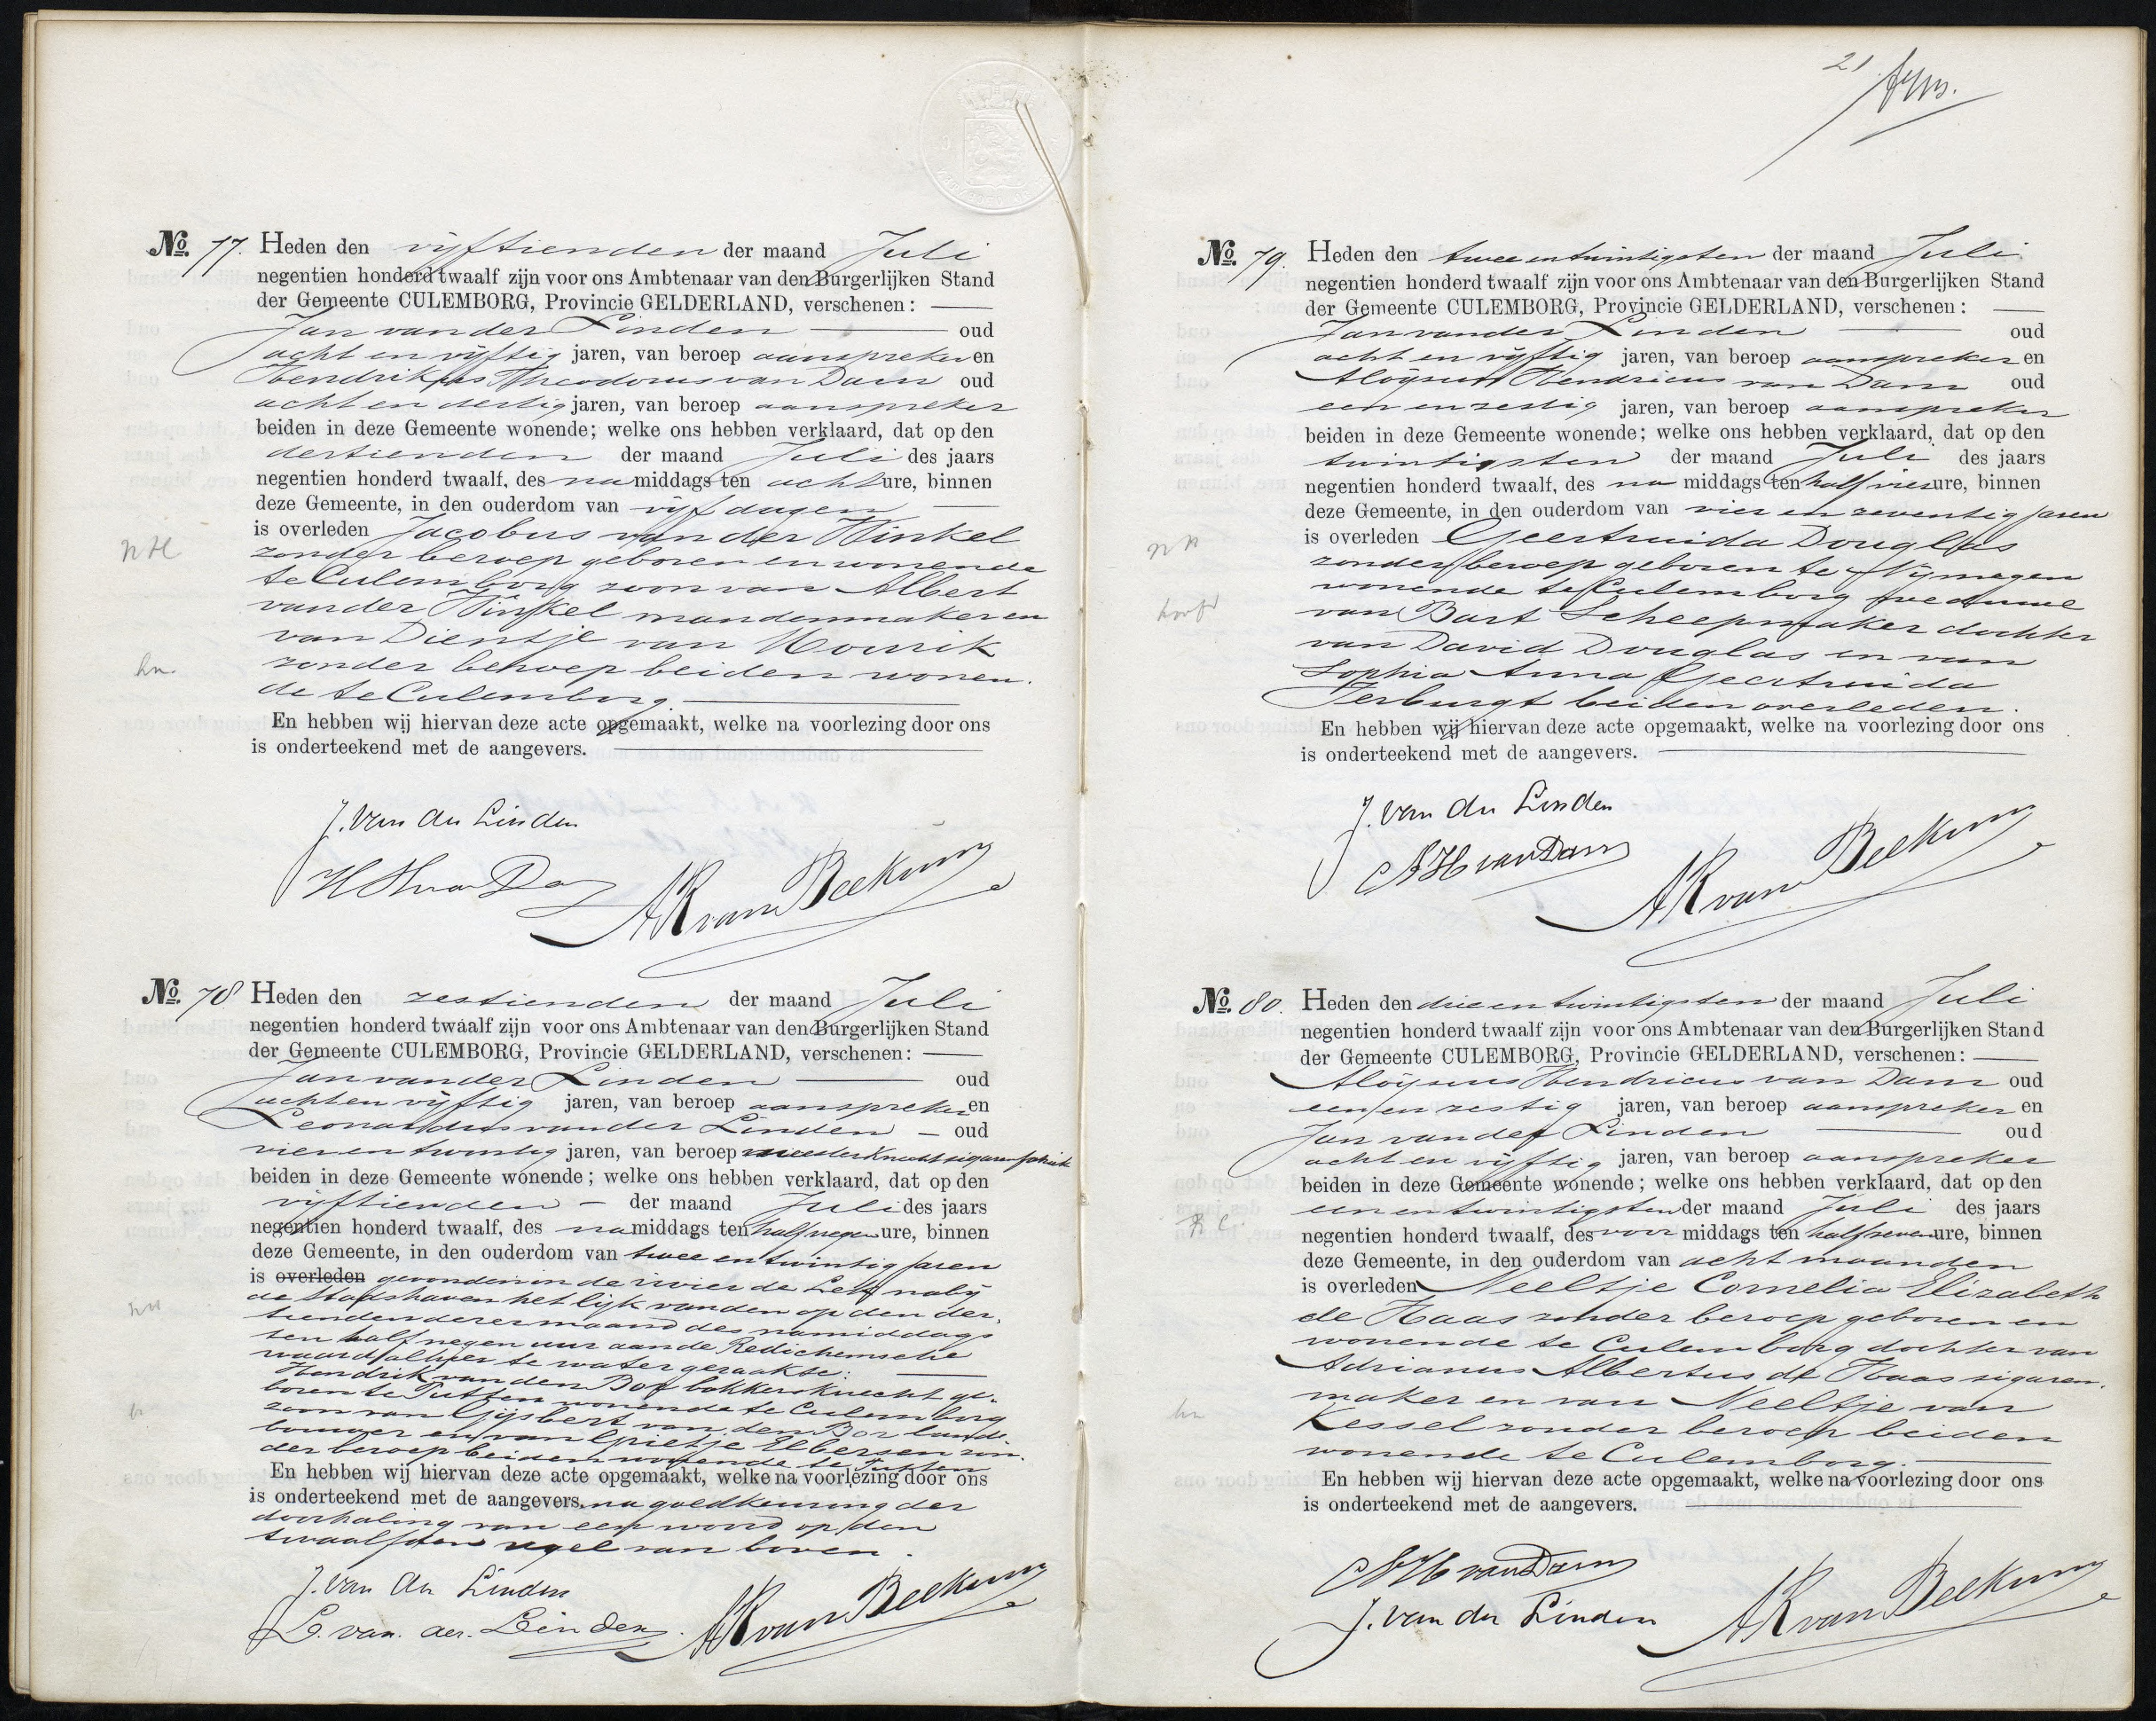 No. 77. Heden den vijftienden der maand Juli
negentien honderd twaalf zijn voor ons Ambtenaar van den Burgerlijken Stand
der Gemeente CULEMBORG, Provincie GELDERLAND, verschenen:
Jan van der Linden oud
acht en vijftig jaren, van beroep aanspreker en
Hendrikus Theodorus van Dam oud
acht en dertig jaren, van beroep aanspreker
beiden in deze Gemeente wonende; welke ons hebben verklaard, dat op den
dertienden der maand Juli des jaars
negentien honderd twaalf, des namiddags ten acht ure, binnen
deze Gemeente, in den ouderdom van vijf dagen
is overleden Jacobus van der Winkel
NH
zonder beroep geboren en wonende
te Culemborg zoon van Albert
van der Winkel mandenmaker en
van Dientje van Mourik
hn.
zonder beroep beiden wonen-
de te Culemborg.
En hebben wij hiervan deze acte opgemaakt, welke na voorlezing door ons
is onderteekend met de aangevers.
J. van der Linden
AK van Beekum
No. 78 Heden den zestienden der maand Juli
negentien honderd twaalf zijn voor ons Ambtenaar van den Burgerlijken Stand
der Gemeente CULEMBORG, Provincie GELDERLAND, verschenen:
Jan van der Linden oud
acht en vijftig jaren, van beroep aanspreker en
Leonardus van der Linden oud
vier en twintig jaren, van beroep meesterknecht sigarenfabriek
beiden in deze Gemeente wonende; welke ons hebben verklaard, dat op den
vijftienden der maand Juli des jaars
negentien honderd twaalf, des namiddags ten half negen ure, binnen
deze Gemeente, in den ouderdom van twee en twintig jaren
is overleden gevonden in de rivier de Lek nabij
de Stadshaven het lijk van den op den der-
tienden dezer maand des namiddags
ten half negen uur aan de Redichemsche
waard alhier te water geraakte:
Hendrik van den Bor bakkersknecht ge-
boren te Putten wonende te Culemborg
zoon van Gijsbert van den Bor land-
bouwer en van Grietje Elbersen zon-
der beroep beiden wonende te Putten
En hebben wij hiervan deze acte opgemaakt, welke na voorlezing door ons
is onderteekend met de aangevers. na goedkeuring der
doorhaling van een woord op den
twaalfden regel van boven.
J. van der Linden
L. van der Linden
AK van Beekum
21
No. 79. Heden den twee en twintigsten der maand Juli
negentien honderd twaalf zijn voor ons Ambtenaar van den Burgerlijken Stand
der Gemeente CULEMBORG, Provincie GELDERLAND, verschenen:
Jan van der Linden oud
acht en vijftig jaren, van beroep aanspreker en
Aloijsius Hendricus van Dam oud
een en zestig jaren, van beroep aanspreker
beiden in deze Gemeente wonende; welke ons hebben verklaard, dat op den
twintigsten der maand Juli des jaars
negentien honderd twaalf, des na middags ten half vier ure, binnen
deze Gemeente, in den ouderdom van vier en zeventig jaren
is overleden Geertruida Douglas
NH
zonder beroep geboren te Nijmegen
wonende te Culemborg weduwe
van Bart Scheepmaker dochter
van David Douglas en van
Sophia Anna Geertruida
Terburgt beiden overleden.
En hebben wij hiervan deze acte opgemaakt, welke na voorlezing door ons
is onderteekend met de aangevers.
J. van der Linden
AH van Dam
AK van Beekum
No. 80. Heden den drie en twintigsten der maand Juli
negentien honderd twaalf zijn voor ons Ambtenaar van den Burgerlijken Stand
der Gemeente CULEMBORG, Provincie GELDERLAND, verschenen:
Aloijsius Hendricus van Dam oud
een en zestig jaren, van beroep aanspreker en
Jan van der Linden oud
acht en vijftig jaren, van beroep aanspreker
beiden in deze Gemeente wonende; welke ons hebben verklaard, dat op den
een en twintigsten der maand Juli des jaars
negentien honderd twaalf, des voor middags ten half zeven ure, binnen
deze Gemeente, in den ouderdom van acht maanden
is overleden Neeltje Cornelia Elizabeth
de Haas zonder beroep geboren en
wonende te Culemborg dochter van
Adrianus Albertus de Haas sigaren-
maker en van Neeltje van
hn
Kessel zonder beroep beiden
wonende te Culemborg.
En hebben wij hiervan deze acte opgemaakt, welke na voorlezing door ons
is onderteekend met de aangevers.
AH van Dam
J. van der Linden
AK van Beekum